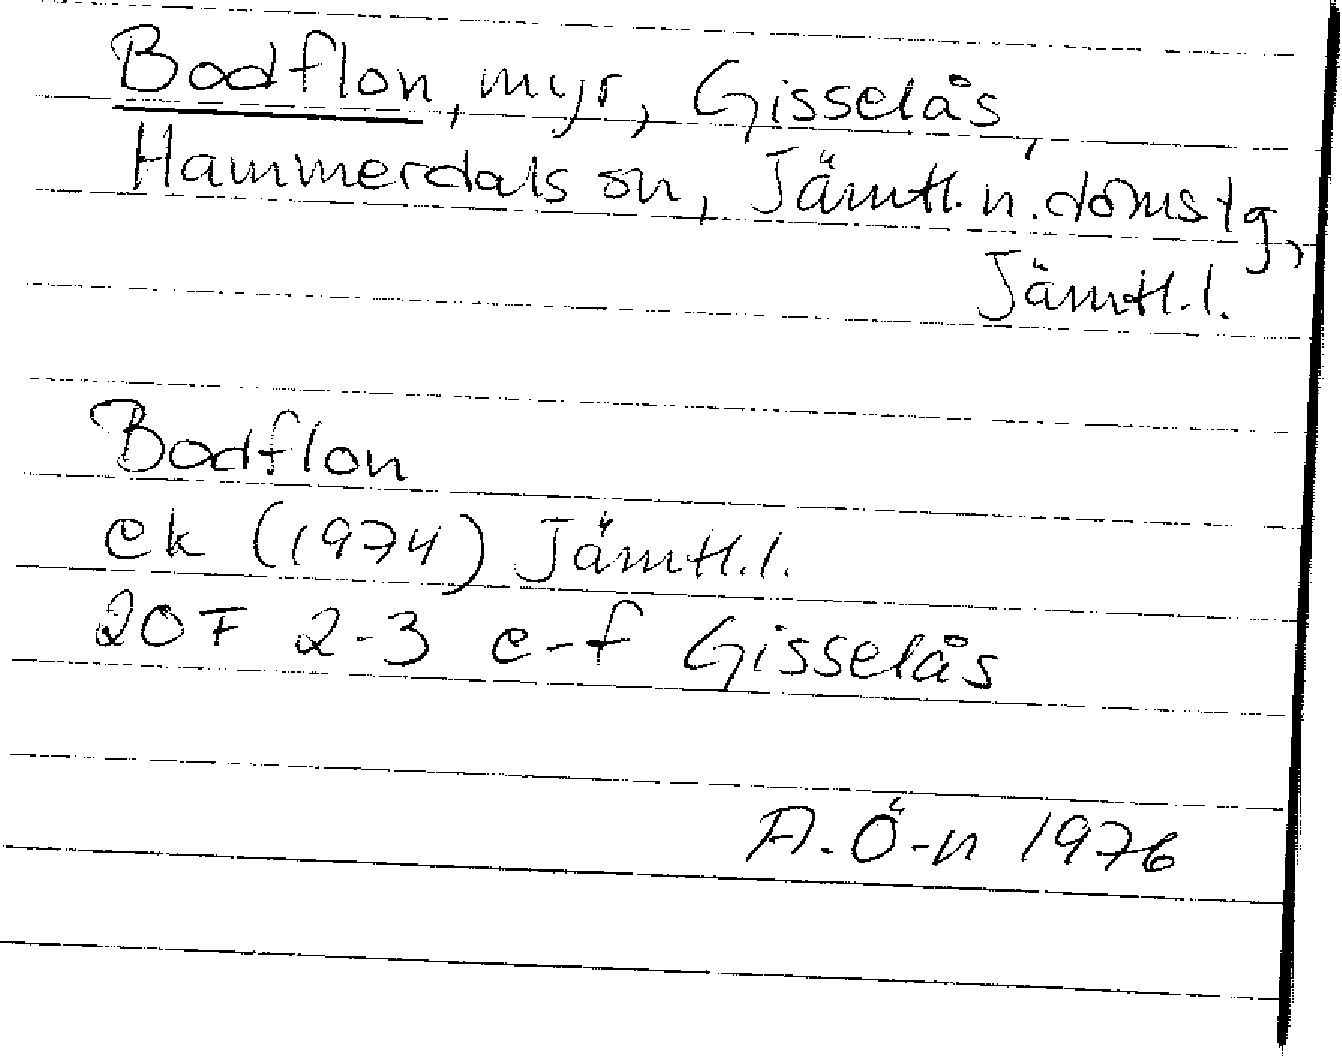 Bodflon, myr, Gisselås,
Hammerdals sn, Jämtl. n. domstg,
Jämtl. l.
Bodflon
ek (1974) Jämtl. l.
20F 2-3 e-f Gisselås
A. Ö-n 1976